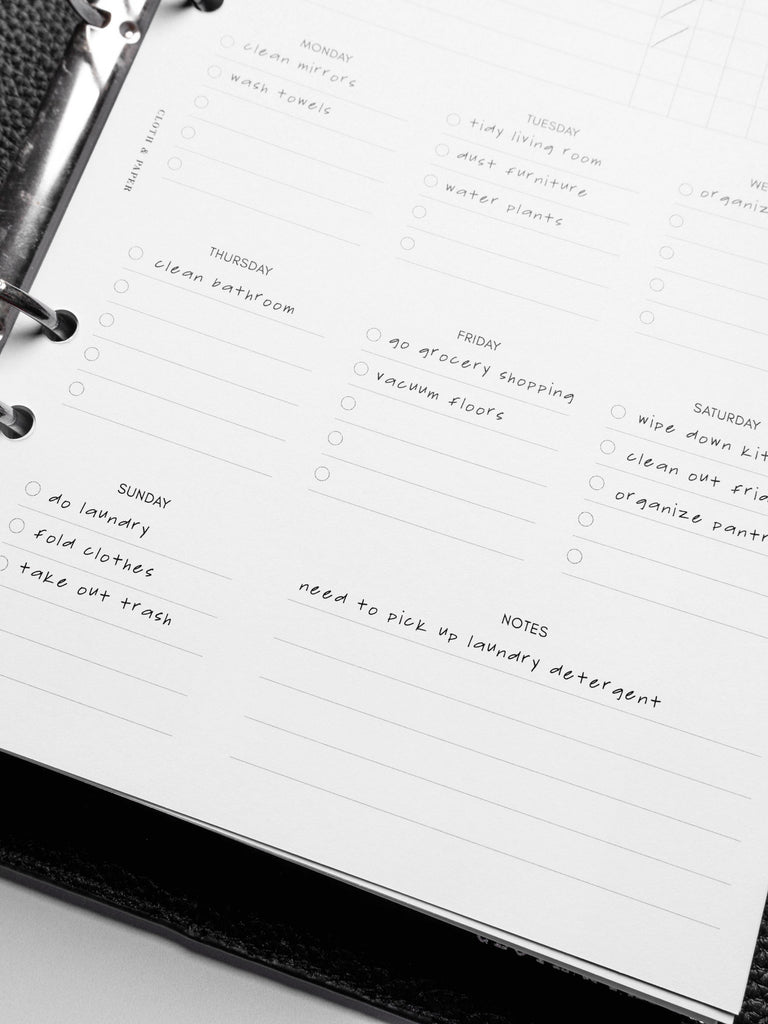 MONDAY
clean mirrors
wash towels
CLOTH & PAPER
TUESDAY
tidy living room
dust furniture
water plants
WE
organiz
THURSDAY
clean bathroom
FRIDAY
go grocery shopping
vacuum floors
SATURDAY
wipe down kit
clean out frid
organize pantr
SUNDAY
do laundry
fold clothes
take out trash
NOTES
need to pick up laundry detergent